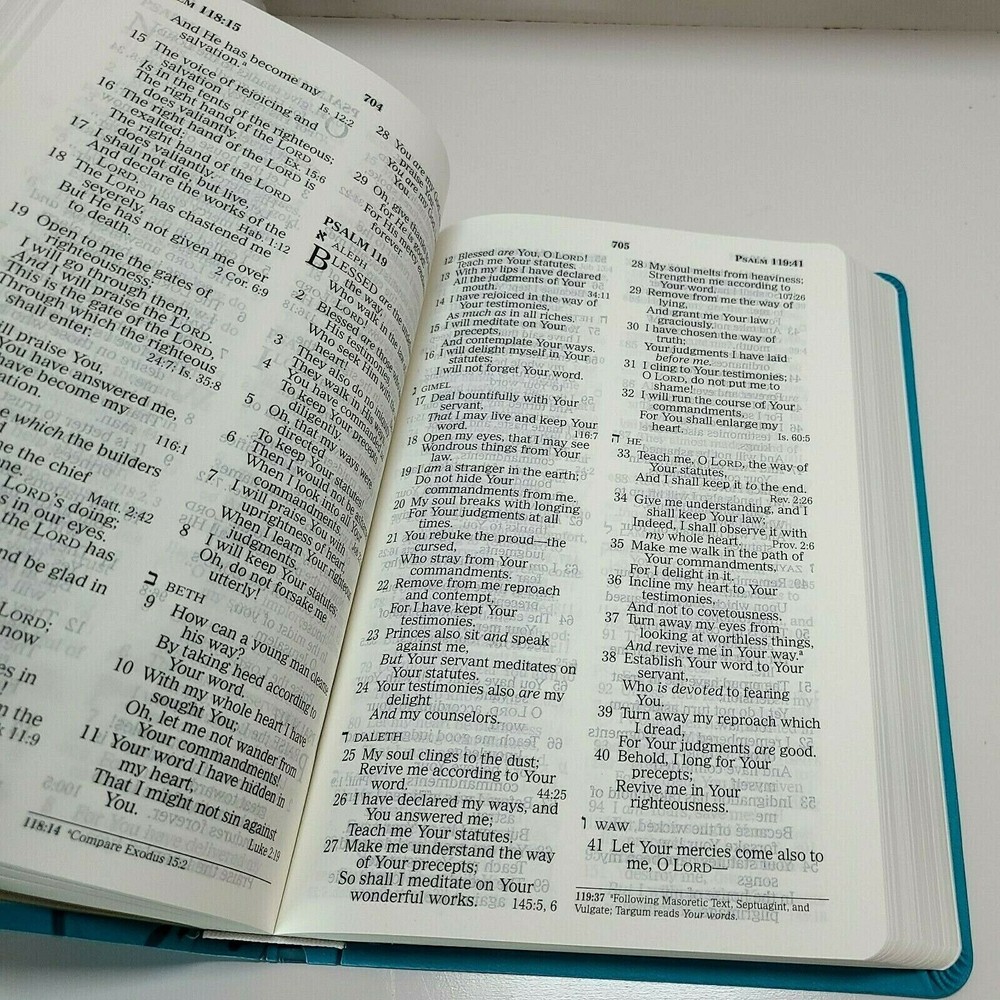 118:15
704
And He has become my
salvation.ª
Is. 12:2
15 The voice of rejoicing and
salvation
Is in the tents of the righteous;
The right hand of the LORD
does valiantly.
Ex. 15:6
16 The right hand of the LORD is
exalted;
The right hand of the LORD
does valiantly.
17 I shall not die, but live,
And declare the works of the
LORD.
Hab. 1:12
18 The LORD has chastened me
severely,
But He has not given me over
to death.
2 Cor. 6:9
19 Open to me the gates of
righteousness;
I will go through them,
And I will praise the LORD.
This is the gate of the LORD,
Through which the righteous
shall enter.
24:7; Is. 35:8
praise You,
You have answered me,
have become my
116:1
which the builders
the chief
Matt. 2:42
LORD'S doing;
in our eyes.
the LORD has
be glad in
LORD;
now
in
the
11:9
118:14 ªCompare Exodus 15:2
28 You are my
praise You
You are my God
You.
29 Oh, give thanks
for He is
For His mercy
forever.
PSALM 119
א ALEPH
BLESSED are
the way
Who walk in the
2 Blessed are those
His testimonies
Who seek
heart!
3 They also do no
They walk in His
4 You have commanded
To keep Your
diligently.
5 Oh, that my ways were
directed
To keep Your statutes!
6 Then I would not be
When I look into all Your
commandments.
7 I will praise You with
uprightness of heart,
When I learn Your righteous
judgments.
8 I will keep Your statutes;
Oh, do not forsake me
utterly!
ב BETH
9 How can a young man cleanse
his way?
By taking heed according to
Your word.
10 With my whole heart I have
sought You;
Oh, let me not wander from
Your commandments!
11 Your word I have hidden in
my heart,
That I might not sin against
You.
Luke 2:19
705
PSALM 119:41
12 Blessed are You, O LORD!
Teach me Your statutes.
13 With my lips I have declared
All the judgments of Your
mouth.
34:11
14 I have rejoiced in the way of
Your testimonies,
As much as in all riches.
15 I will meditate on Your
precepts,
And contemplate Your ways.
16 I will delight myself in Your
statutes;
I will not forget Your word.
ג GIMEL
17 Deal bountifully with Your
servant,
That I may live and keep Your
word.
116:7
18 Open my eyes, that I may see
Wondrous things from Your
law.
19 I am a stranger in the earth;
Do not hide Your
commandments from me.
20 My soul breaks with longing
For Your judgments at all
times.
21 You rebuke the proud—the
cursed,
Who stray from Your
commandments.
22 Remove from me reproach
and contempt,
For I have kept Your
testimonies.
23 Princes also sit and speak
against me,
But Your servant meditates on
Your statutes.
24 Your testimonies also are my
delight
And my counselors.
ד DALETH
25 My soul clings to the dust;
Revive me according to Your
word.
44:25
26 I have declared my ways, and
You answered me;
Teach me Your statutes.
27 Make me understand the way
of Your precepts;
So shall I meditate on Your
wonderful works.
145:5, 6
28 My soul melts from heaviness;
Strengthen me according to
Your word.
107:26
29 Remove from me the way of
lying,
And grant me Your law
graciously.
30 I have chosen the way of
truth;
Your judgments I have laid
before me.
31 I cling to Your testimonies;
O LORD, do not put me to
shame!
32 I will run the course of Your
commandments,
For You shall enlarge my
heart.
Is. 60:5
ה HE
33 Teach me, O LORD, the way of
Your statutes,
And I shall keep it to the end.
Rev. 2:26
34 Give me understanding, and I
shall keep Your law;
Indeed, I shall observe it with
my whole heart.
Prov. 2:6
35 Make me walk in the path of
Your commandments,
For I delight in it.
36 Incline my heart to Your
testimonies,
And not to covetousness.
37 Turn away my eyes from
looking at worthless things,
And revive me in Your way.ª
38 Establish Your word to Your
servant,
Who is devoted to fearing
You.
39 Turn away my reproach which
I dread,
For Your judgments are good.
40 Behold, I long for Your
precepts;
Revive me in Your
righteousness.
ו WAW
41 Let Your mercies come also to
me, O LORD—
119:37 ªFollowing Masoretic Text, Septuagint, and
Vulgate; Targum reads Your words.